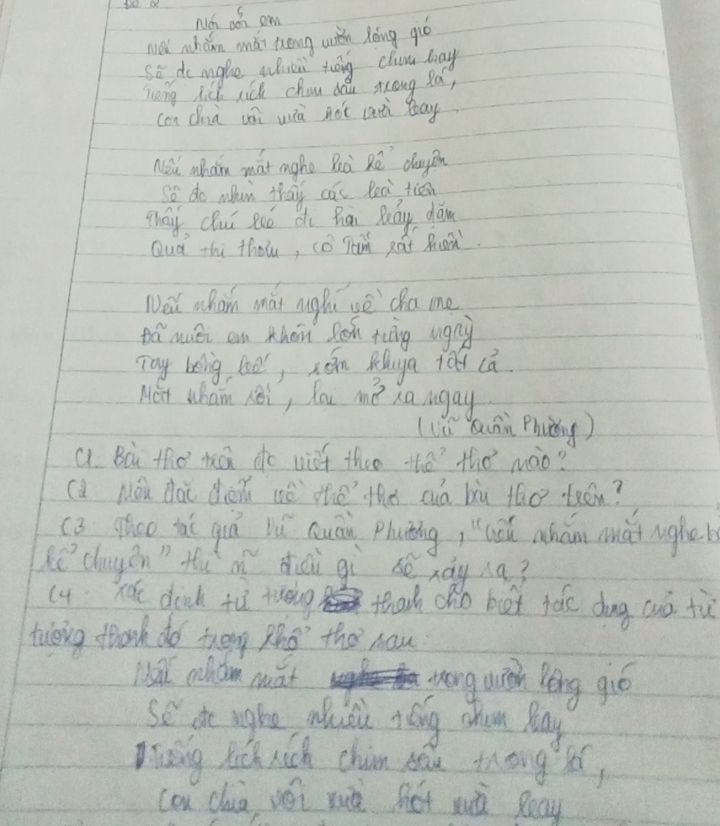 Đề 2
Nói với em
Nếu nhắm mắt trong vườn lộng gió
Sẽ đc nghe nhiều tiếng chim hay
Tiếng lích rích chim sâu trong lá,
Con chìa vôi vừa hót vừa bay
Nếu nhắm mắt nghe bà kể chuyện
Sẽ đc nhìn thấy các bà tiên
Thấy chú bé đi hài bảy dặm
Quả thị thơm, cô Tấm rất hiền.
Nếu nhắm mắt nghĩ về cha mẹ
Đã nuôi em khôn lớn từng ngày
Tay bồng bế, sớm khuya tất cả.
Mắt nhắm rồi, lại mở ra ngay
(Vũ Quần Phương)
C1. Bài thơ trên đc viết theo thể thơ nào?
C2 Nêu đặc điểm về thể thơ của bài thơ trên?
C3 Theo tác giả Vũ Quần Phương, "Nếu nhắm mắt nghe b
kể chuyện" thì điều gì sẽ xảy ra?
C4: Xác định từ tượng thanh cho biết tác dụng của từ
tượng thanh đó trong khổ thơ sau
Nếu nhắm mắt trong vườn lộng gió
Sẽ đc nghe nhiều tiếng chim hay
Tiếng lích rích chim sâu trong lá,
Con chìa vôi vừa hót vừa bay